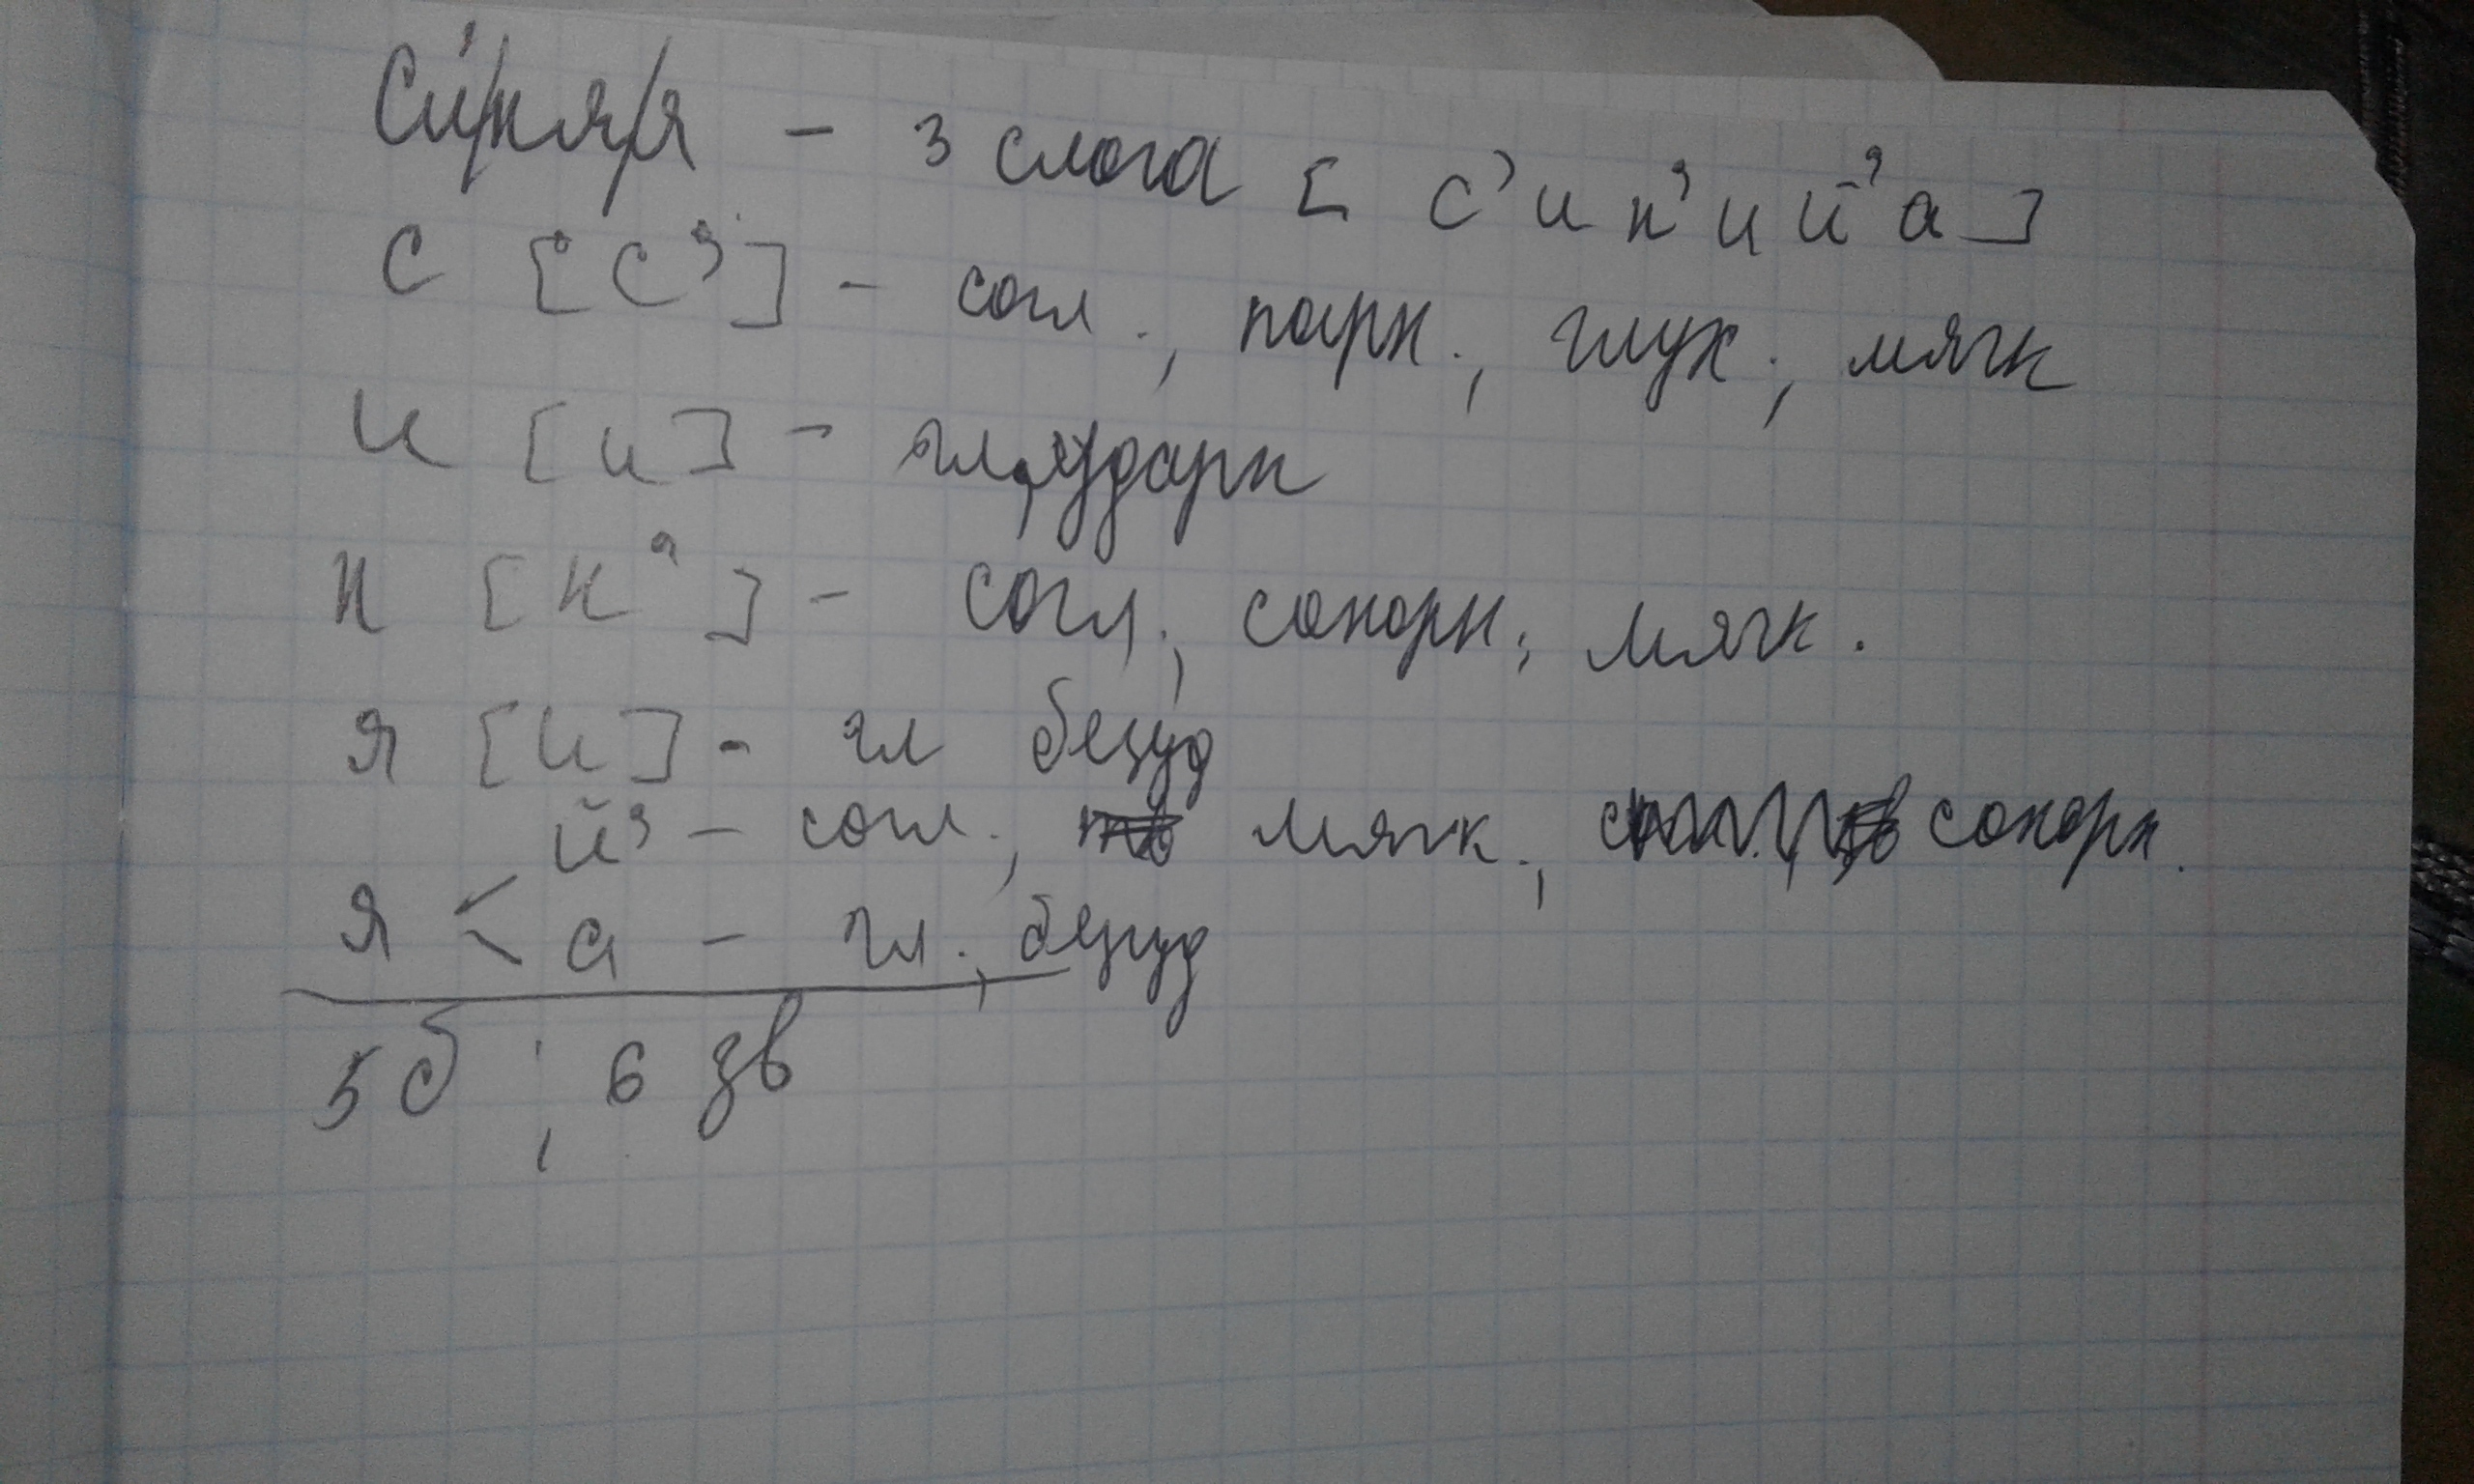 Си́/ня/я - 3 слога [с'ин'ий'а]
с [с'] - согл., парн., глух., мягк
и [и] - гл, ударн
н [н'] - согл., сонорн; мягк.
я [и] - гл безуд
й' - согл., мягк., сонорн.
я < а - гл., безуд
5 б ; 6 зв